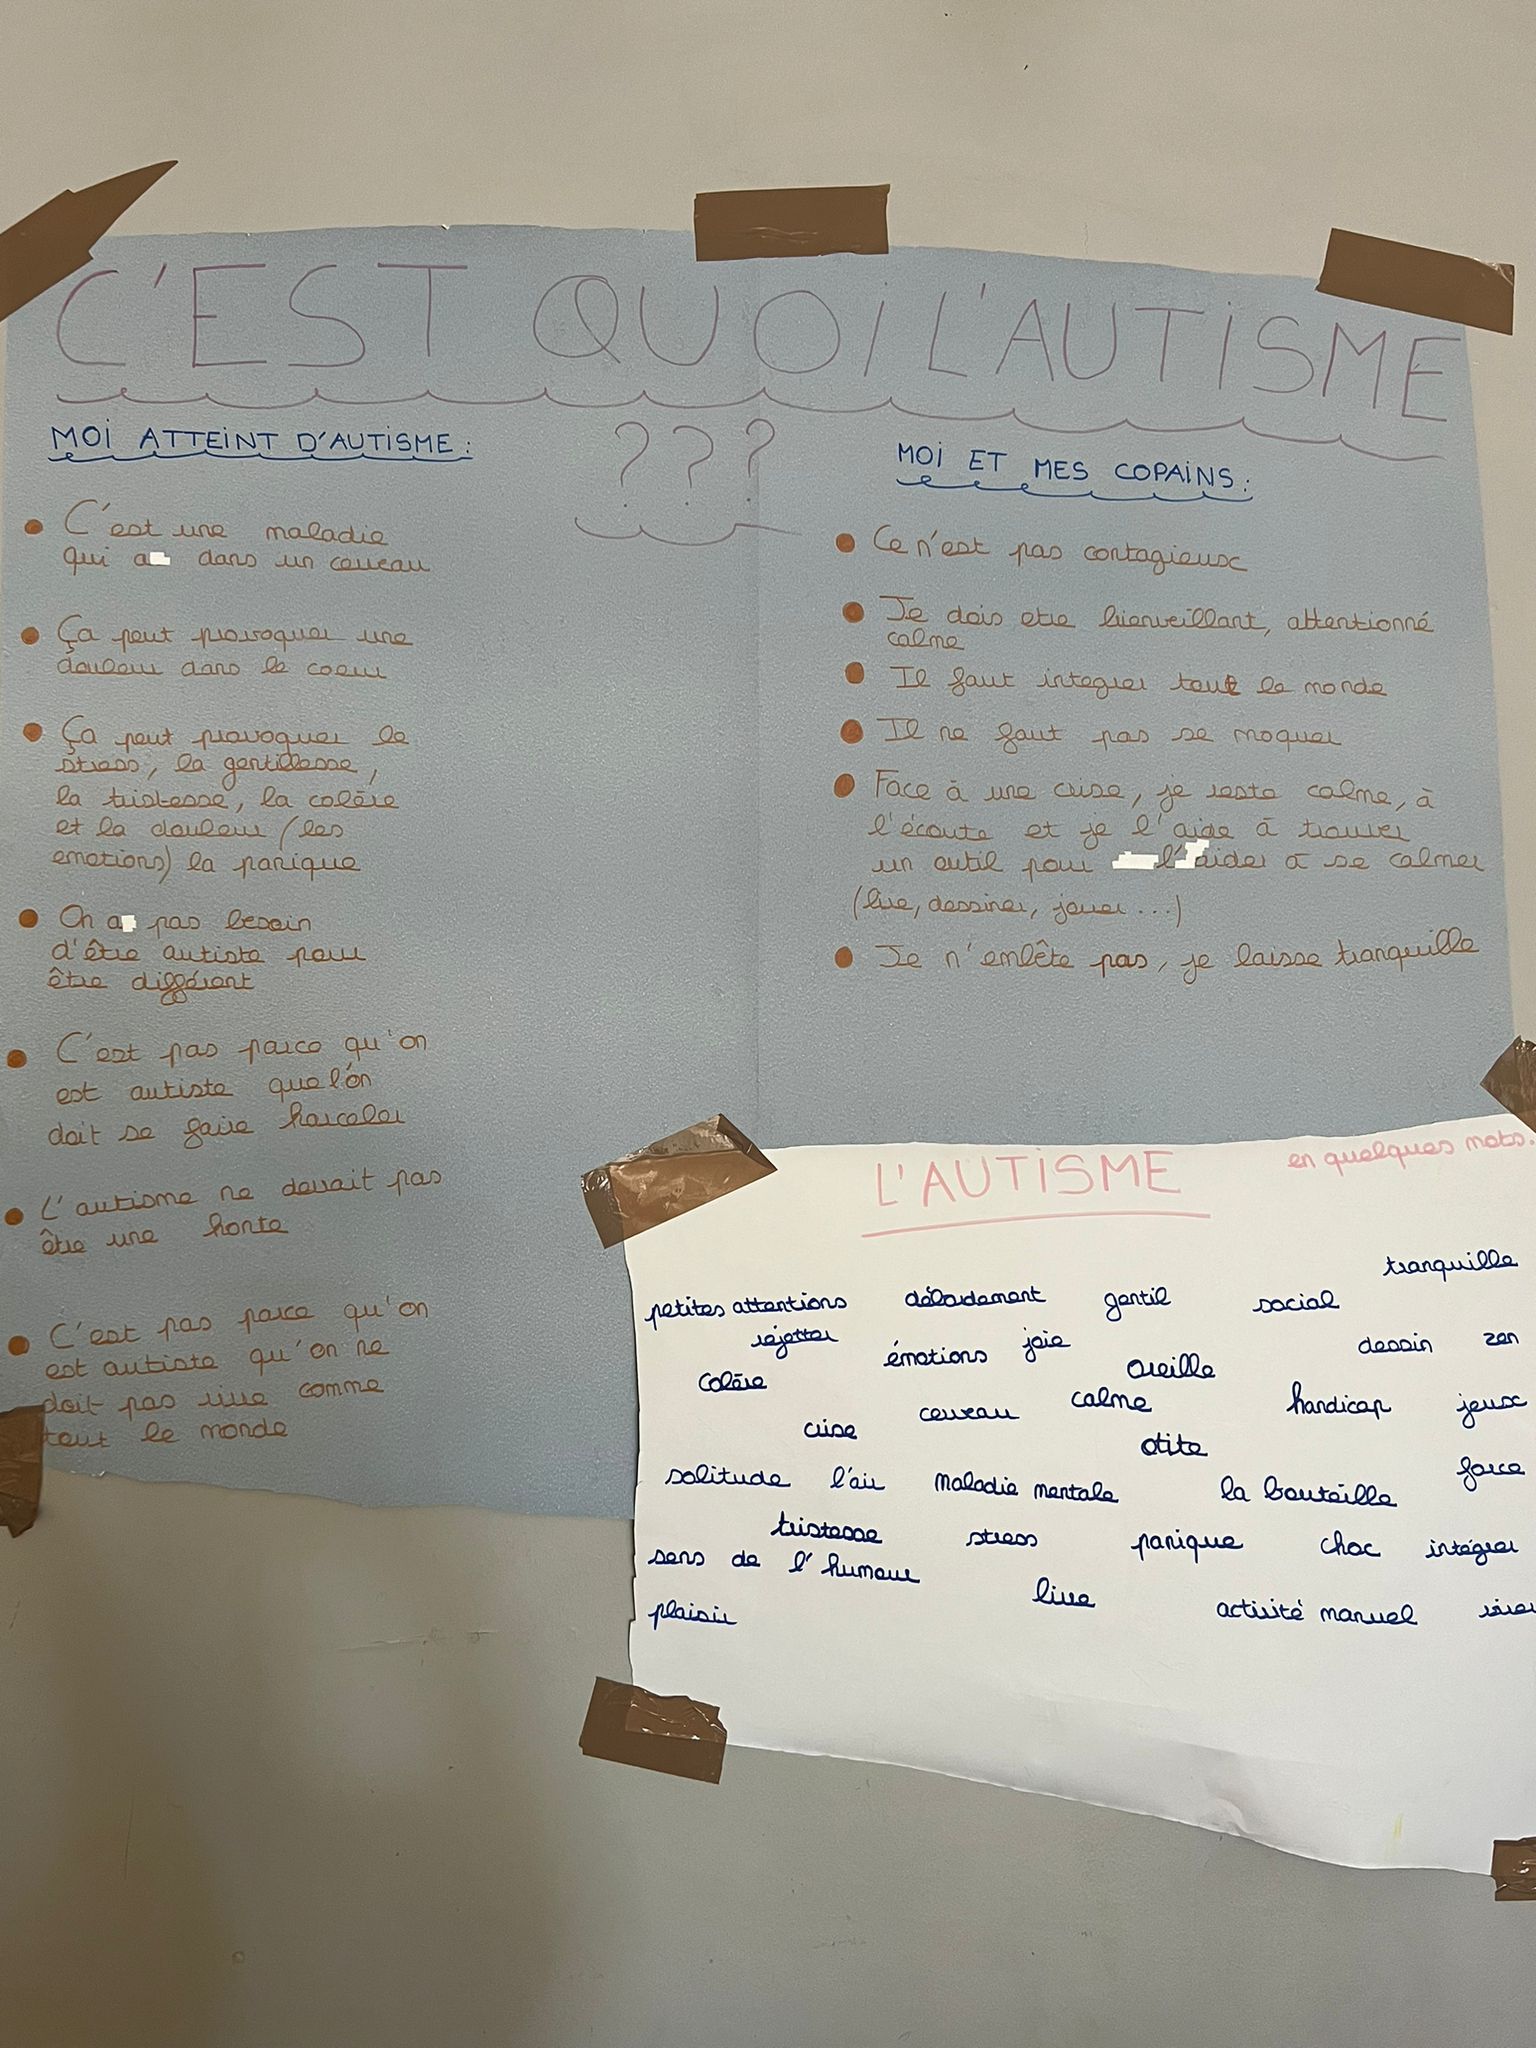 C'EST QUOI L'AUTISME
???
MOI ATTEINT D'AUTISME :
• C'est une maladie
qui a dans un cerveau
• Ça peut provoquer une
douleur dans le coeur
• Ça peut provoquer le
stress, la gentillesse,
la tristesse, la colère
et la douleur (les
emotions) la panique
• On a pas besoin
d'être autiste pour
être différent
• C'est pas parce qu'on
est autiste que l'on
doit se faire harceler
• L'autisme ne devrait pas
être une honte
• C'est pas parce qu'on
est autiste qu'on ne
doit pas vivre comme
tout le monde
MOI ET MES COPAINS :
• Ce n'est pas contagieux
• Je dois etre bienveillant, attentionné
calme
• Il faut integrer tout le monde
• Il ne faut pas se moquer
• Face à une crise, je reste calme, à
l'écoute et je l'aide à trouver
un outil pour l'aider à se calmer
(lire, dessiner, jouer ...)
• Je n'embête pas, je laisse tranquille
L'AUTISME en quelques mots.
tranquille
petites attentions débordement gentil social
rejetter émotions joie dessin zen
colère oreille
crise cerveau calme handicap jeux
otite
solitude l'air maladie mentale la bouteille force
tristesse stress panique choc intégrer
sens de l'humour
plaisir livre activité manuel